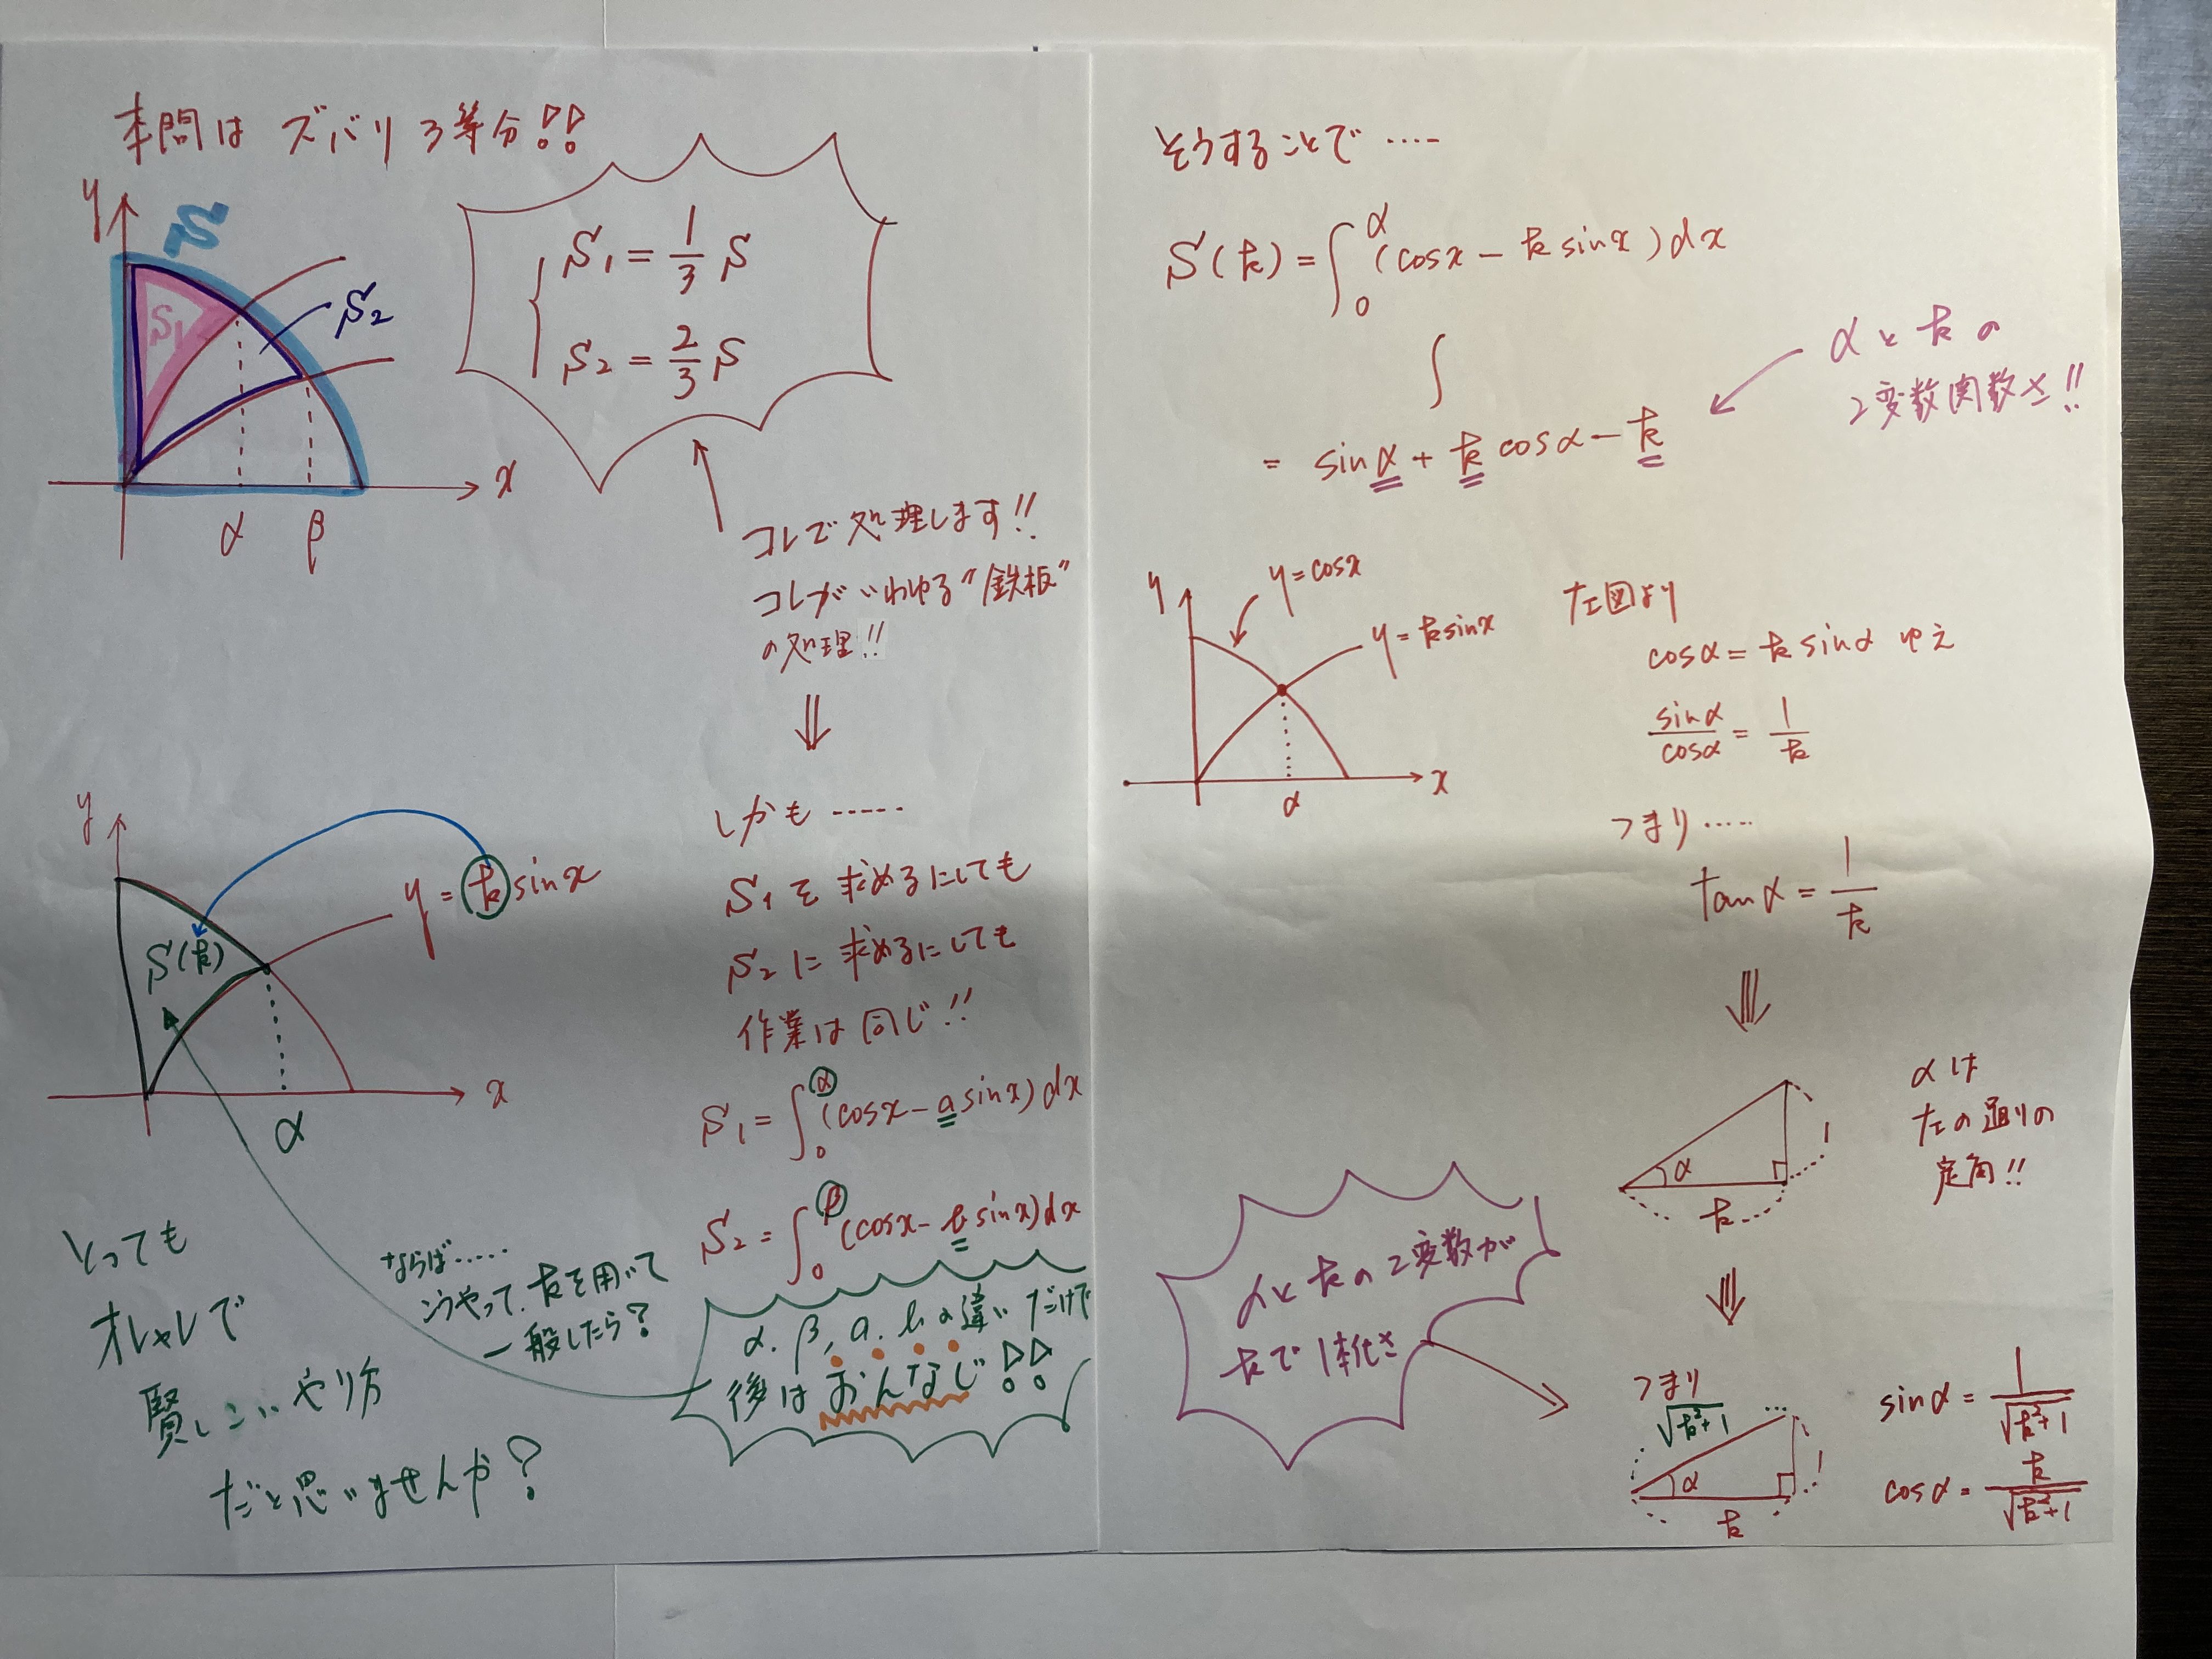 本問は ズバリ 3等分!!
y
S
S1
S2
α
β
x
S1 = 1/3 S
S2 = 2/3 S
コレで処理します!!
コレがいわゆる"鉄板"
の処理!!
⇓
しかも……
S1を求めるにしても
S2に求めるにしても
作業は同じ!!
S1 = ∫0^α (cosx - a sinx) dx
S2 = ∫0^β (cosx - b sinx) dx
α, β, a, bの違いだけで
後はおんなじ!!
y
y = k sinx
S(k)
α
x
ならば……
こうやって, kを用いて
一般したら?
とっても
オシャレで
賢しこいやり方
だと思いませんか?
そうすることで……
S(k) = ∫0^α (cosx - k sinx) dx
∫
= sinα + k cosα - k
αとkの
2変数関数さ!!
y
y = cosx
y = k sinx
α
x
左図より
cosα = k sinα ゆえ
sinα/cosα = 1/k
つまり……
tanα = 1/k
⇓
α
k
1
αは
左の通りの
定角!!
⇓
αとkの2変数が
kで1本化さ
つまり
√(k²+1)
α
k
1
sinα = 1/√(k²+1)
cosα = k/√(k²+1)